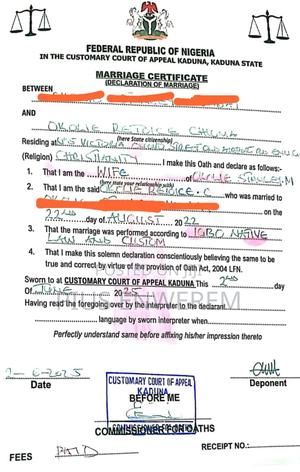 FEDERAL REPUBLIC OF NIGERIA
IN THE CUSTOMARY COURT OF APPEAL, KADUNA STATE
MARRIAGE CERTIFICATE
(DECLARATION OF MARRIAGE)
BETWEEN
AND
OKOLIE CHUMA
(here State citizenship)
Residing at VICTORIA
(Religion) CHRISTIANITY I make this Oath and declare as follows:
1. That I am the WIFE of OKOLIE STANLEY.M
(here state your relationship with)
2. That I am the said REJOICE.C who was married to
on the
22ND day of AUGUST 2022
3. That the marriage was performed according to IGBO NATIVE
LAW AND CUSTOM
4. That I make this solemn declaration conscientiously believing the same to be
true and correct by virtue of the provision of Oath Act, 2004 LFN.
POSTED ON
Sworn to at CUSTOMARY COURT OF APPEAL KADUNA This 2nd day
Of JUNE 2025
Having read the foregoing over by the interpreter to the declarant.
language by sworn interpreter when
Perfectly understand same before affixing his/her impression thereto
2-6-2025
Date
Deponent
CUSTOMARY COURT OF APPEAL
KADUNA
BEFORE ME
COMMISSIONER FOR OATHS
COMMISSIONER FOR OATHS
FEES PAID
RECEIPT NO.: